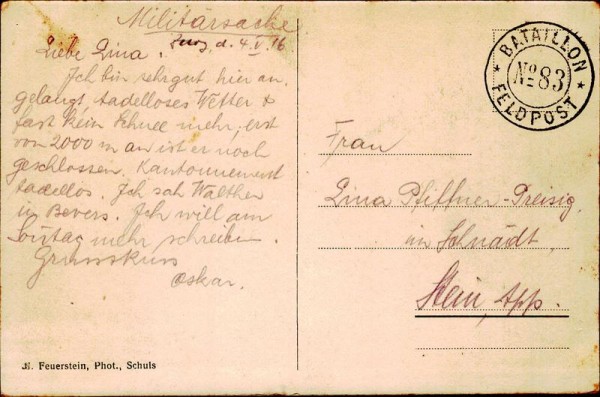 Militärsache
d. 4. V. 16
Liebe Lina.
Ich bin sehr gut hier an
gelangt, tadelloses Wetter &
fast kein Schnee mehr, erst
von 2000 m an ist er noch
geschlossen. Kantonnement
tadellos. Ich sah Walther
in Bevers. Ich will am
Sontag mehr schreiben.
Grusskuss
Oskar.
BATAILLON
No 83
FELDPOST
Frau
Lina Pfiffner-Preisig,
im Schnädt,
Stein, App.
Feuerstein, Phot., Schuls